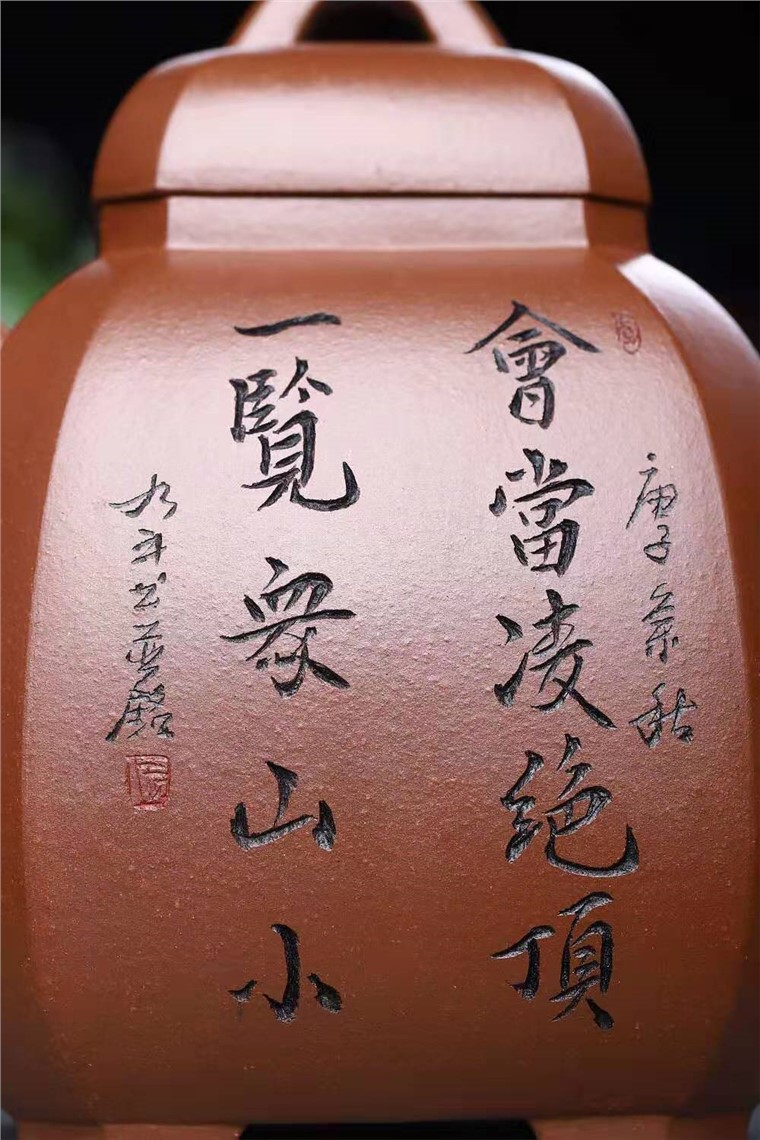 庚子金秋
會當凌絕頂
一覽衆山小